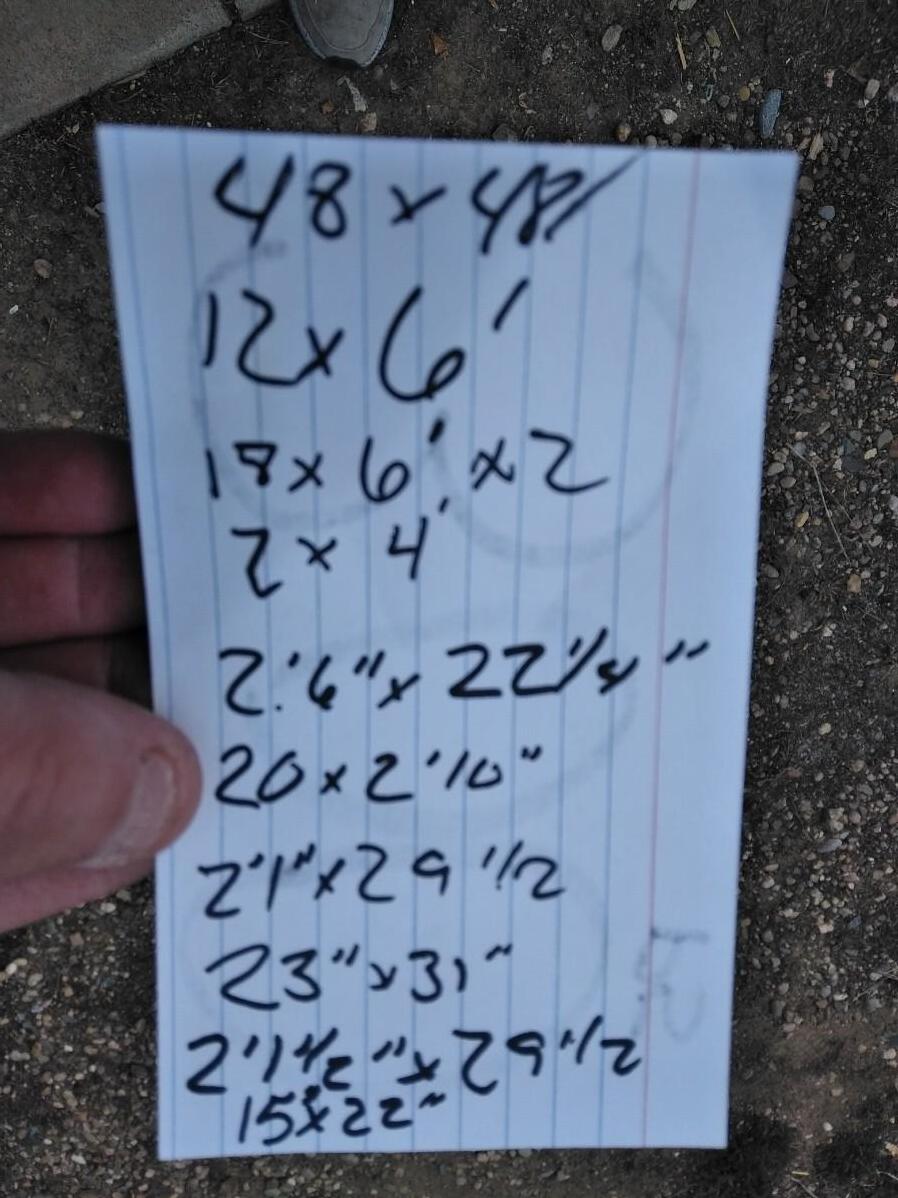 48 x 48
12 x 6'
18 x 6' x 2
2 x 4'
2'6" x 22 1/4"
20 x 2'10"
2'1" x 29 1/2
23" x 31"
2'1 1/2" x 29 1/2
15" x 22"